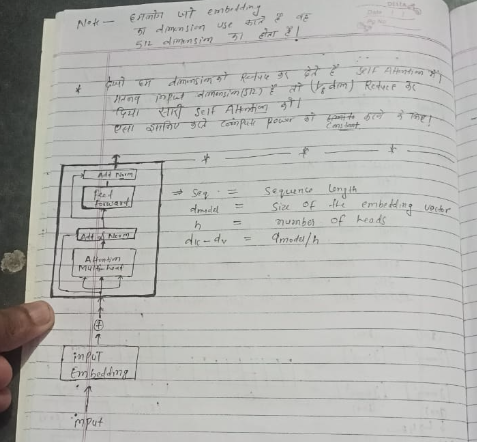 Note - हमलोग जो embedding
का dimension use करते है वह
512 dimension का होता है।
* देखो हम dimension को Reduce कर देते है Self Attention में।
मतलब input dimension (512) है तो (1/8 dim) Reduce कर
दिया सारी Self Attention को।
ऐसा इसलिए करते compute power को constant करने के लिए।
Add Norm
Feed
Forward
Add & Norm
Attention
Multi-head
input
Embedding
input
⇒ Seq = Sequence length
dmodel = Size of the embedding vector
h = number of heads
dk - dv = dmodel/h